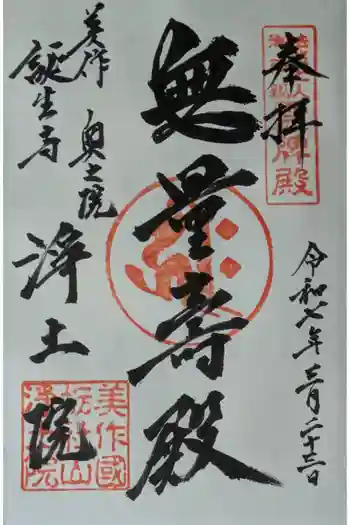 奉拝
令和七年三月二十三日
無量寿殿
美作 奥之院
誕生寺
浄土院
美作國